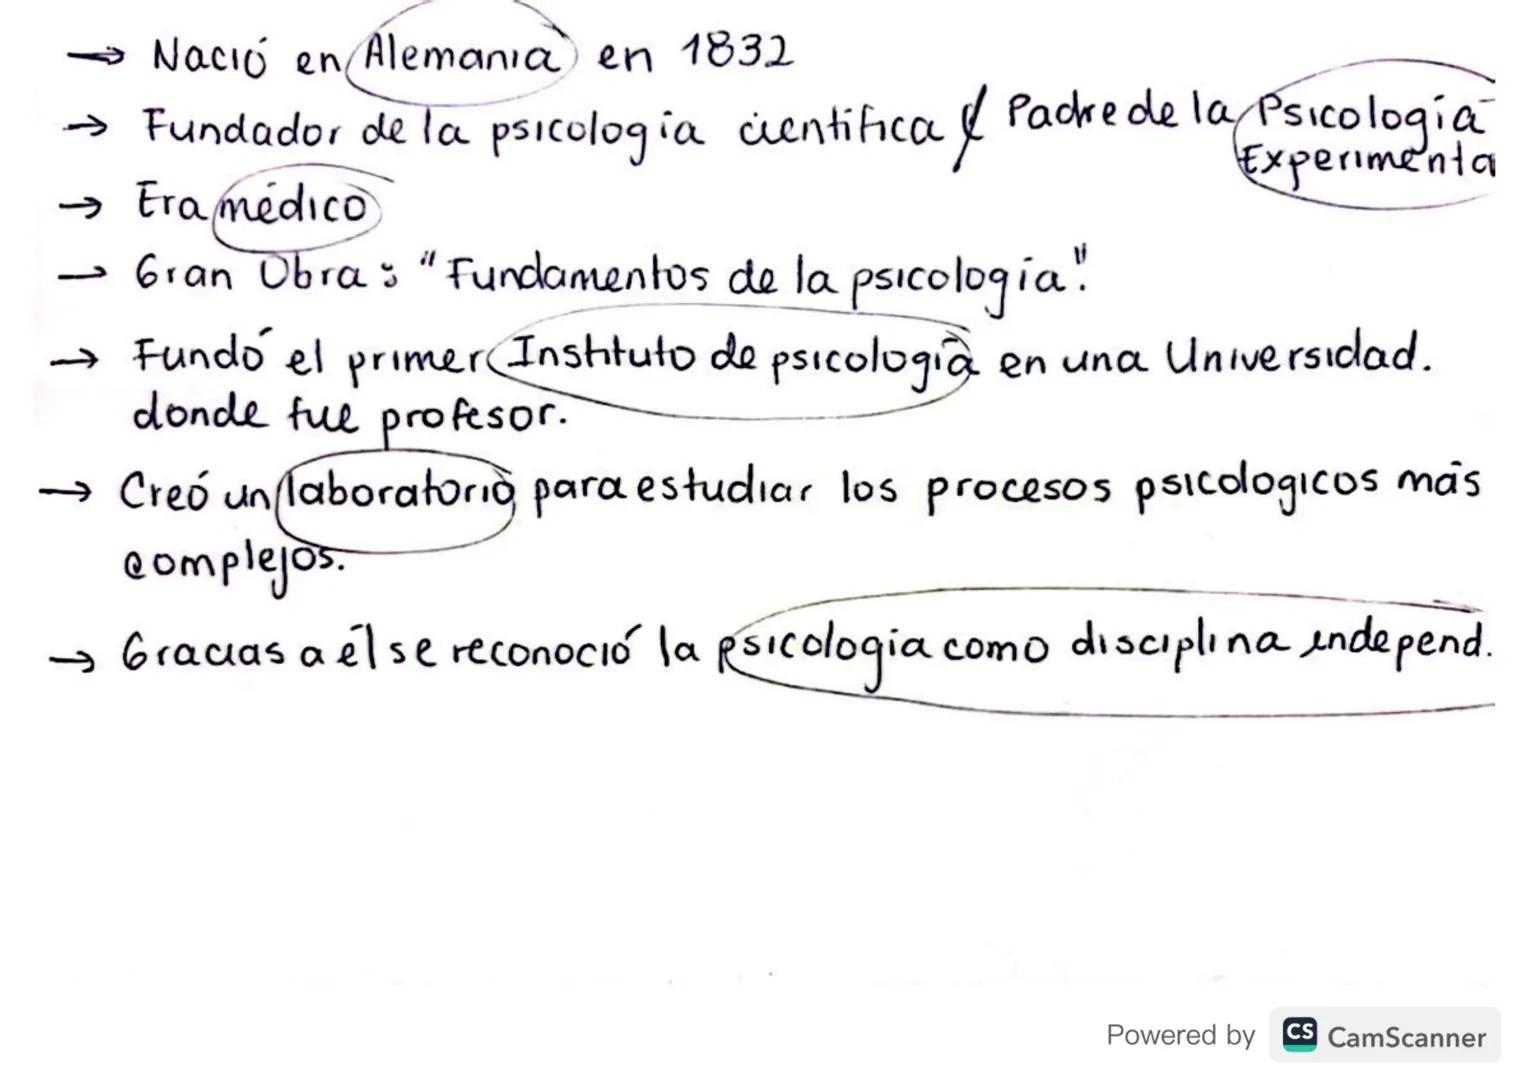 → Nació en Alemania en 1832
→ Fundador de la psicologia científica y Padre de la Psicología
Experimenta
→ Era médico
→ Gran Obra: "Fundamentos de la psicología".
→ Fundó el primer Instituto de psicología en una Universidad.
donde fue profesor.
→ Creó un laboratorio para estudiar los procesos psicologicos más
complejos.
→ Gracias a él se reconoció la psicologia como disciplina independ.
Powered by CS CamScanner